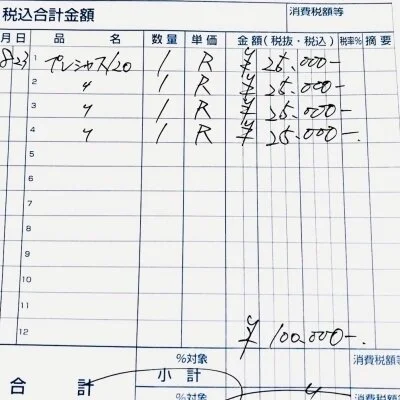 税込合計金額 消費税額等
月 日 品 名 数量 単価 金額(税抜・税込) 税率% 摘要
8 23 1 プレシャス/20 1 R ¥25,000-
2 〃 1 R ¥25,000-
3 〃 1 R ¥25,000-
4 〃 1 R ¥25,000-.
5
6
7
8
9
10
11
12 ¥100,000-.
%対象 消費税額等
合計 小計 〃
%対象 消費税額等